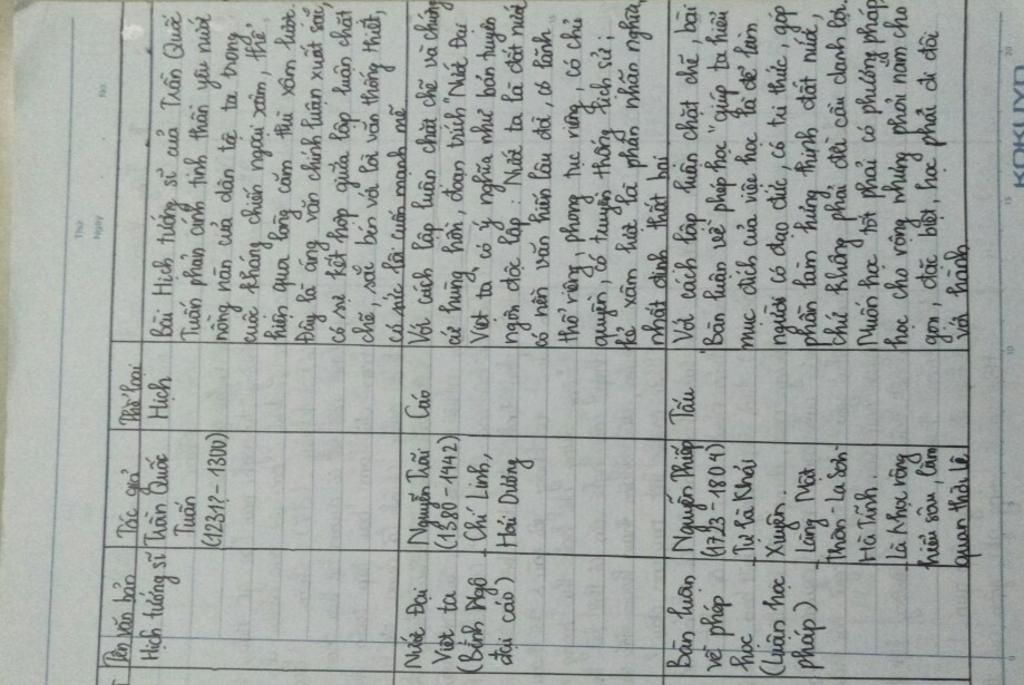 Thứ
Ngày
No.
Tên văn bản
Tác giả
Thể loại
Hịch tướng sĩ
Trần Quốc
Tuấn
(1231?-1300)
Hịch
Bài Hịch tướng sĩ của Trần Quốc
Tuấn phản ánh tinh thần yêu nước
nồng nàn của dân tộc ta trong
cuộc kháng chiến ngoại xâm, thể
hiện qua lòng căm thù xâm lược.
Đây là áng văn chính luận xuất sắc,
có sự kết hợp giữa lập luận chặt
chẽ, sắc bén với lời văn thống thiết,
có sức lôi cuốn mạnh mẽ
Nước Đại
Việt ta
(Bình Ngô
đại cáo)
Nguyễn Trãi
(1380-1442)
Chí Linh,
Hải Dương
Cáo
Với cách lập luận chặt chẽ và chứng
cứ hùng hồn, đoạn trích "Nước Đại
Việt ta" có ý nghĩa như bản tuyên
ngôn độc lập: Nước ta là đất nước
có nền văn hiến lâu đời, có lãnh
thổ riêng, phong tục riêng, có chủ
quyền, có truyền thống lịch sử;
kẻ xâm lược là phản nhân nghĩa,
nhất định thất bại
Bàn luận
về phép
học
(Luận học
pháp)
Nguyễn Thiếp
(1723-1804)
Tự là Khải
Xuyên.
Làng Mật
Thôn - La Sơn-
Hà Tĩnh.
Là Nho rộng
hiểu sâu, làm
quan thời Lê
Tấu
Với cách lập luận chặt chẽ, bài
Bàn luận về phép học" giúp ta hiểu
mục đích của việc học là để làm
người có đạo đức, có tri thức, góp
phần làm hưng thịnh đất nước,
chứ không phải để cầu danh lợi.
Muốn học tốt phải có phương pháp,
học cho rộng nhưng phải nắm cho
gọn, đặc biệt, học phải đi đôi
với hành
KOKUYO